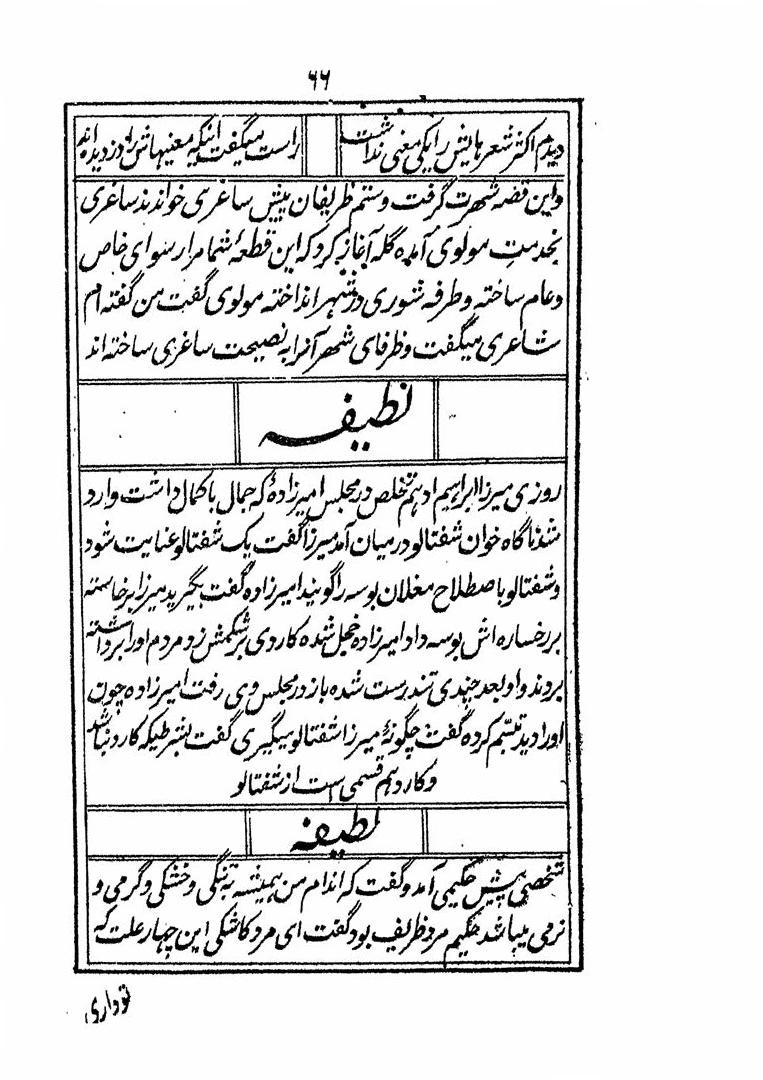 ۶۶
دیدم اکثر شعرهایش را یکی معنی نداشت راست میگفت اینکه معنیهاش را دزدیده اند
و این قصه شهرت گرفت و ستم ظریفان پیش ساغری خواندند ساغری
بخدمت مولوی آمده گله آغاز کرد که این قطعهٔ شما مرا رسوای خاص
و عام ساخته و طرفه شوری در شهر انداخته مولوی گفت من گفته ام
شاعری میگفت و ظرفای شهر آنرا به نصیحت ساغری ساخته اند
لطیفه
روزی میرزا ابراهیم ادهم تخلص در مجلس امیرزادهٔ که جمال با کمال داشت وارد
شد ناگاه خوان شفتالو در میان آمد میرزا گفت یک شفتالو عنایت شود
و شفتالو باصطلاح مغلان بوسه را گویند امیرزاده گفت بگیرید میرزا برخاسته
بر رخساره اش بوسه داد امیرزاده خجل شده کاردی بر شکمش زد مردم او را برداشته
بردند و او بعد چندی تندرست شده باز در مجلس وی رفت امیرزاده چون
او را دید تبسّم کرده گفت چگونهٔ میرزا شفتالو میگیری گفت بشرطیکه کارد نباشد
و کارد هم قسمی است از شفتالو
لطیفه
شخصی پیش حکیمی آمد و گفت که اندام من همیشه به تنگی و خشکی و گرمی و
نرمی میباشد حکیم مرد ظریف بود گفت ای مرد کاشکی این چهار علت که
تو داری